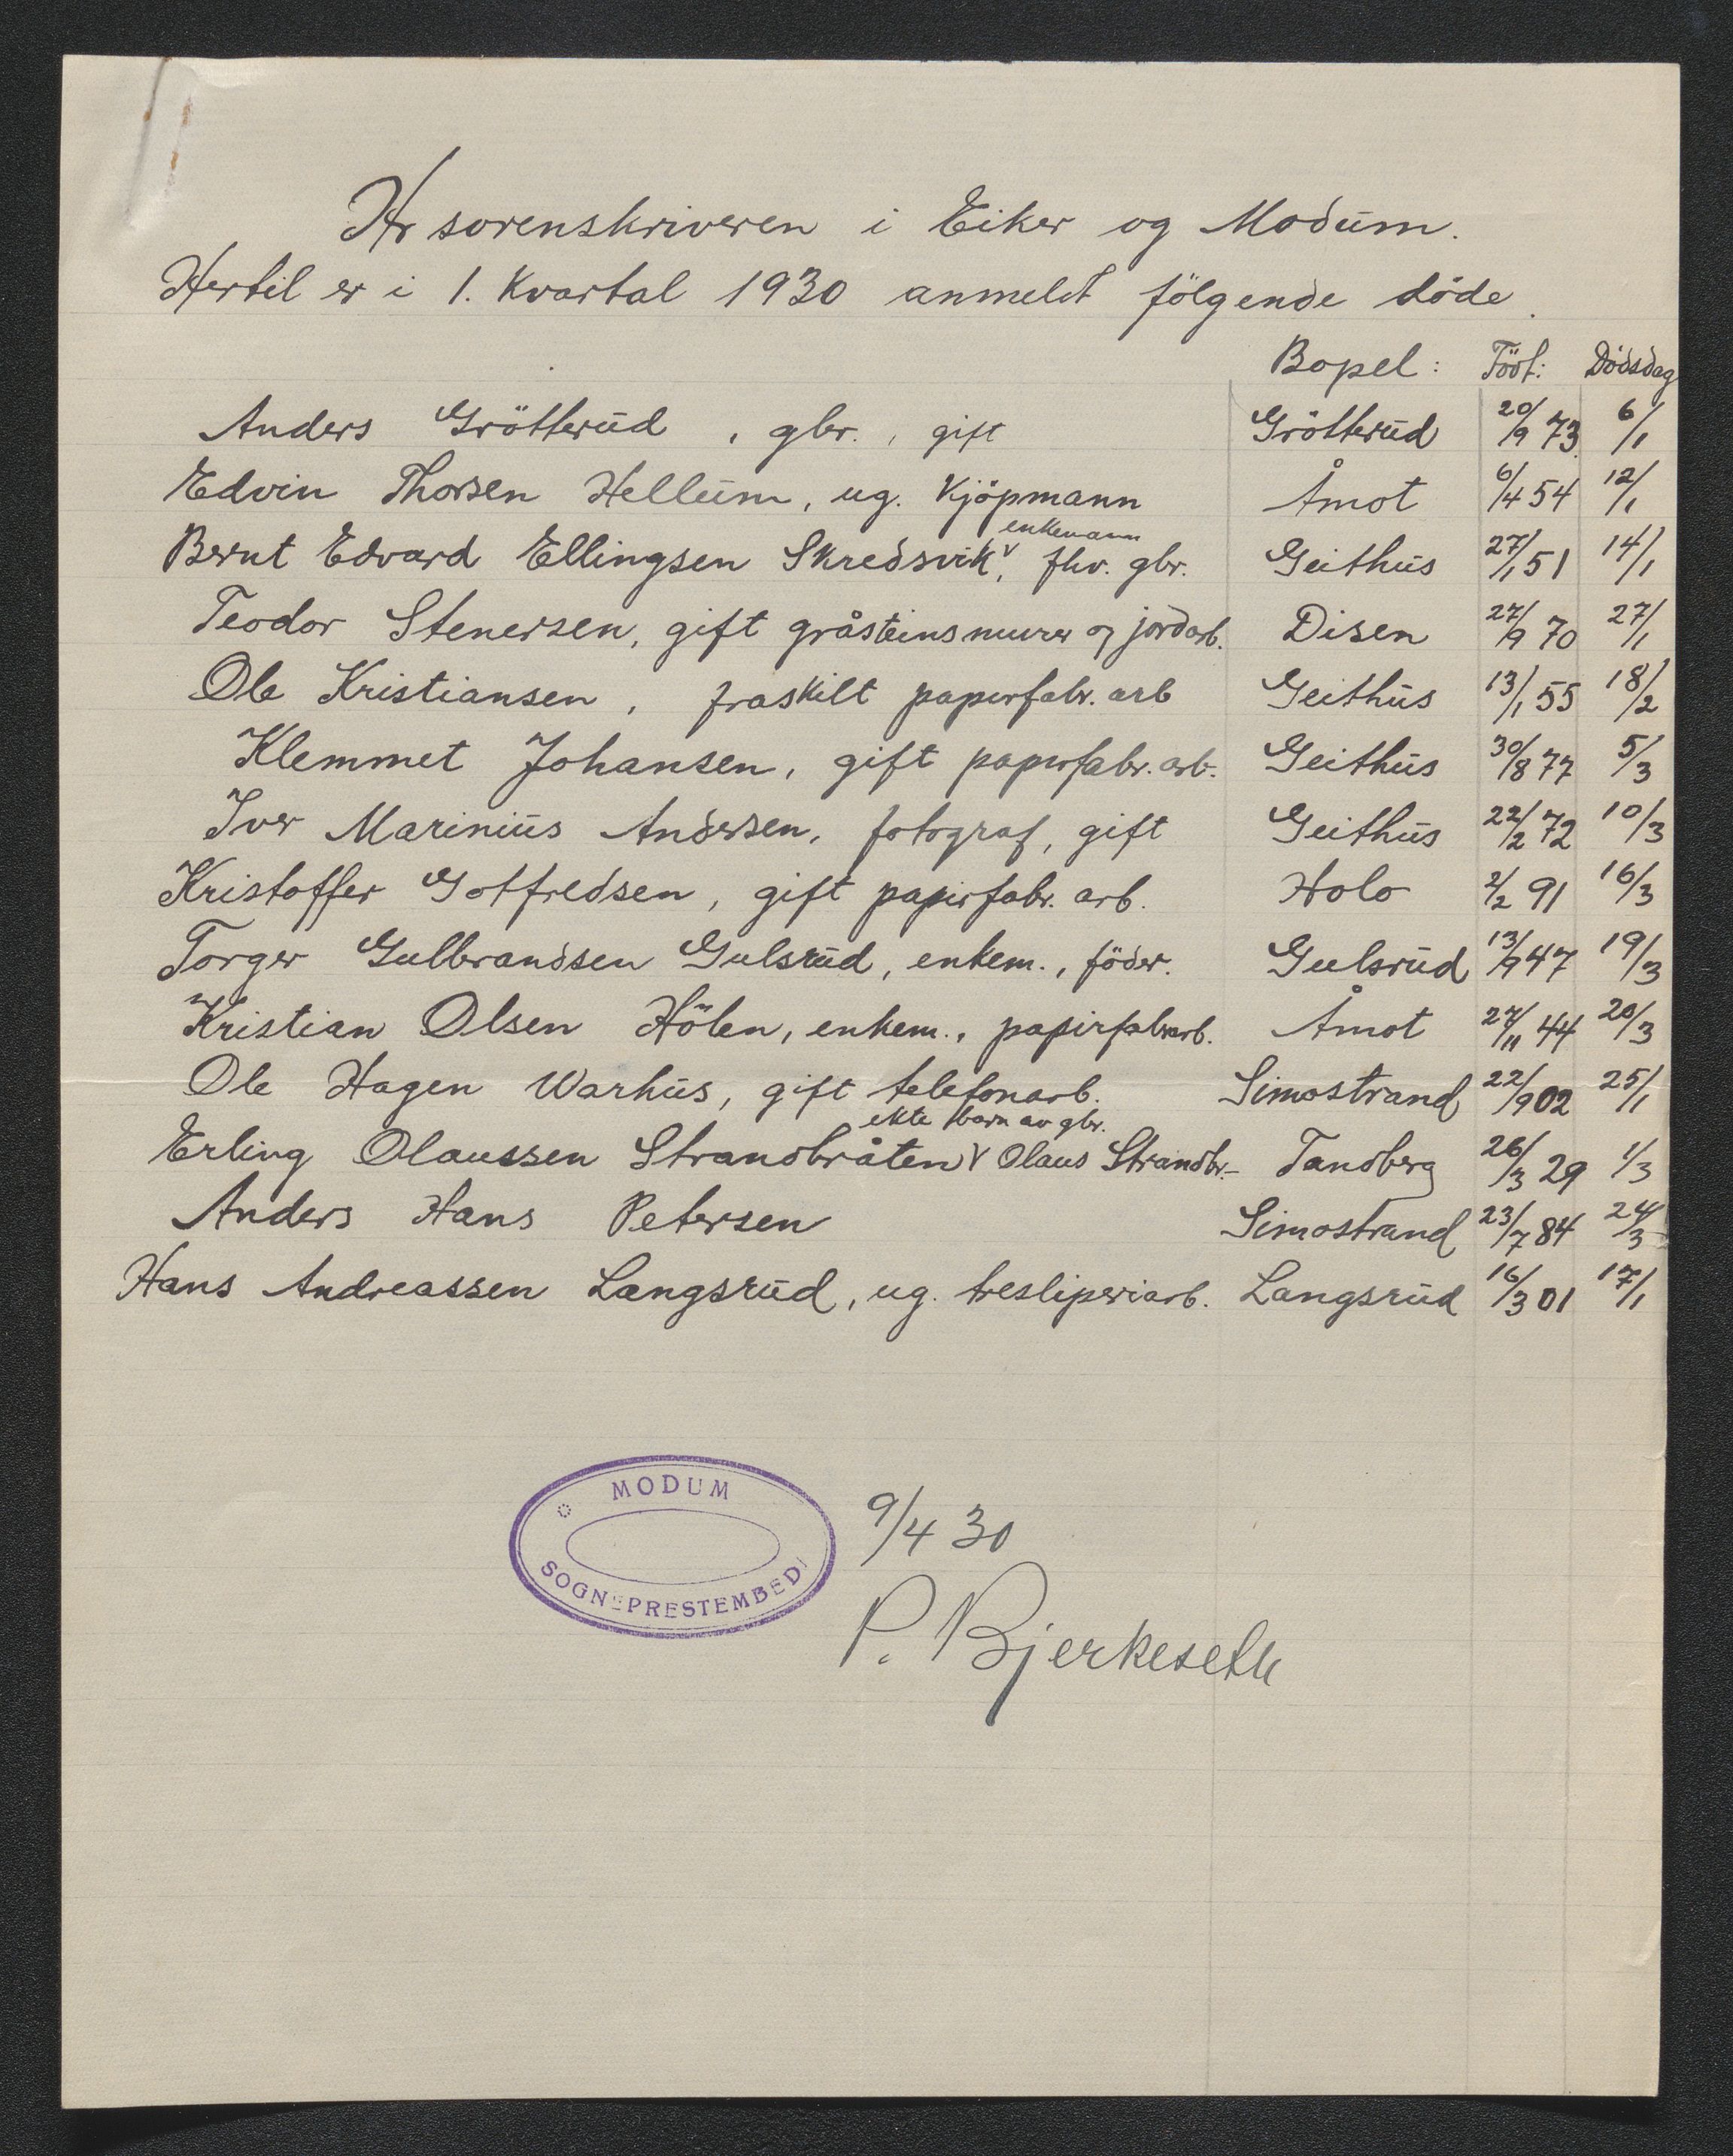 Hr sorenskriveren i Eiker og Modum.
Hertil er i 1. Kvartal 1930 anmeldt fölgende döde.
Bopel: Födt: Dödsdag
Anders Grötterud, gbr., gift Grötterud 20/9 73 6/1
Edvin Thorsen Hellum, ug. Kjöpmann Åmot 6/4 54 12/1
enkemann
Bernt Edvard Ellingsen Skredsvik, fhv. gbr. Geithus 27/1 51 14/1
Teodor Stenersen, gift gråsteinsmurer og jordarb. Disen 27/9 70 27/1
Ole Kristiansen, fraskilt papirfabr. arb Geithus 13/1 55 18/2
Klemmet Johansen, gift papirfabr. arb. Geithus 30/8 77 5/3
Iver Marinius Andersen, fotograf, gift Geithus 22/2 72 10/3
Kristoffer Gotfredsen, gift papirfabr. arb. Holo 2/2 91 16/3
Torger Gulbrandsen Gulsrud, enkem., föder. Gulsrud 13/9 47 19/3
Kristian Olsen Hölen, enkem., papirfabrarb. Åmot 27/11 44 20/3
Ole Hagen Warhus, gift telefonarb. Simostrand 22/9 02 25/1
ekte barn av gbr.
Erling Olaussen Strandbråten V Olaus Strandbr.- Tandberg 26/3 29 1/3
Anders Hans Petersen Simostrand 23/7 84 24/3
Hans Andreassen Langsrud, ug. tresliperiarb. Langsrud 16/3 01 17/1
MODUM
SOGNEPRESTEMBED
9/4 30
P. Bjerkeseth